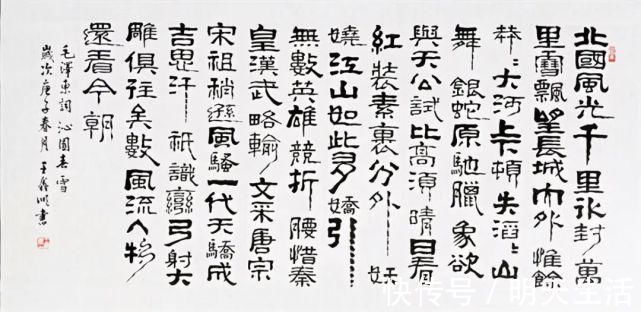 北國風光千里冰封萬
里雪飄望長城內外惟餘
莽〻大河上下頓失滔〻山
舞銀蛇原馳臘象欲
與天公試比高須晴日看
紅裝素裹分外妖
嬈江山如此多嬌引
無數英雄競折腰惜秦
皇漢武略輸文采唐宗
宋祖稍遜風騷一代天驕成
吉思汗祇識彎弓射大
雕俱往矣數風流人物
還看今朝
毛澤東詞沁園春雪
歲次庚子春月王書
快传号/明天生活